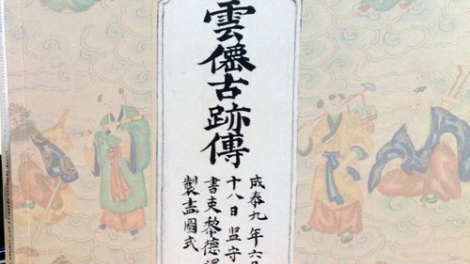 雲僊古跡傳
成泰九年六月
十八日监守
書吏黎德
製畫國式